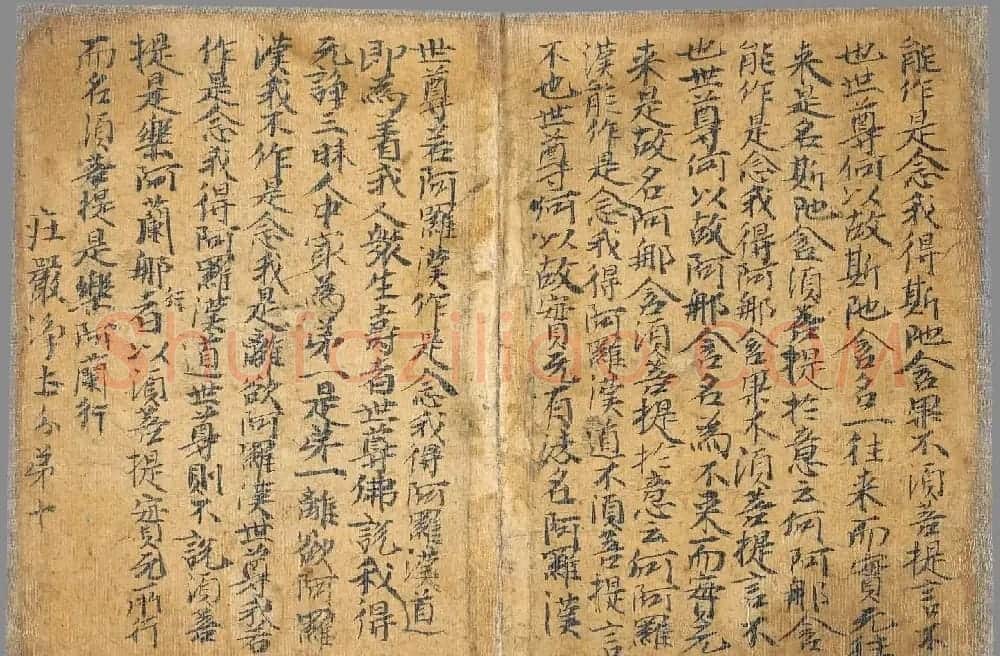 能作是念我得斯陁含果不須菩提言不
也世尊何以故斯陁含名一往来而實无往
来是名斯陁含須菩提於意云何阿那含
能作是念我得阿那含果不須菩提言不
也世尊何以故阿那含名為不来而實无
来是故名阿那含須菩提於意云何阿羅
漢能作是念我得阿羅漢道不須菩提言
不也世尊何以故實无有法名阿羅漢
世尊若阿羅漢作是念我得阿羅漢道
即為著我人衆生壽者世尊佛說我得
无諍三昧人中冣為第一是第一離欲阿羅
漢我不作是念我是離欲阿羅漢世尊我若
作是念我得阿羅漢道世尊則不說須菩
提是樂阿蘭那行者以須菩提實无所行
而名須菩提是樂阿蘭行
庄嚴淨土分第十
Shufaziliao.com